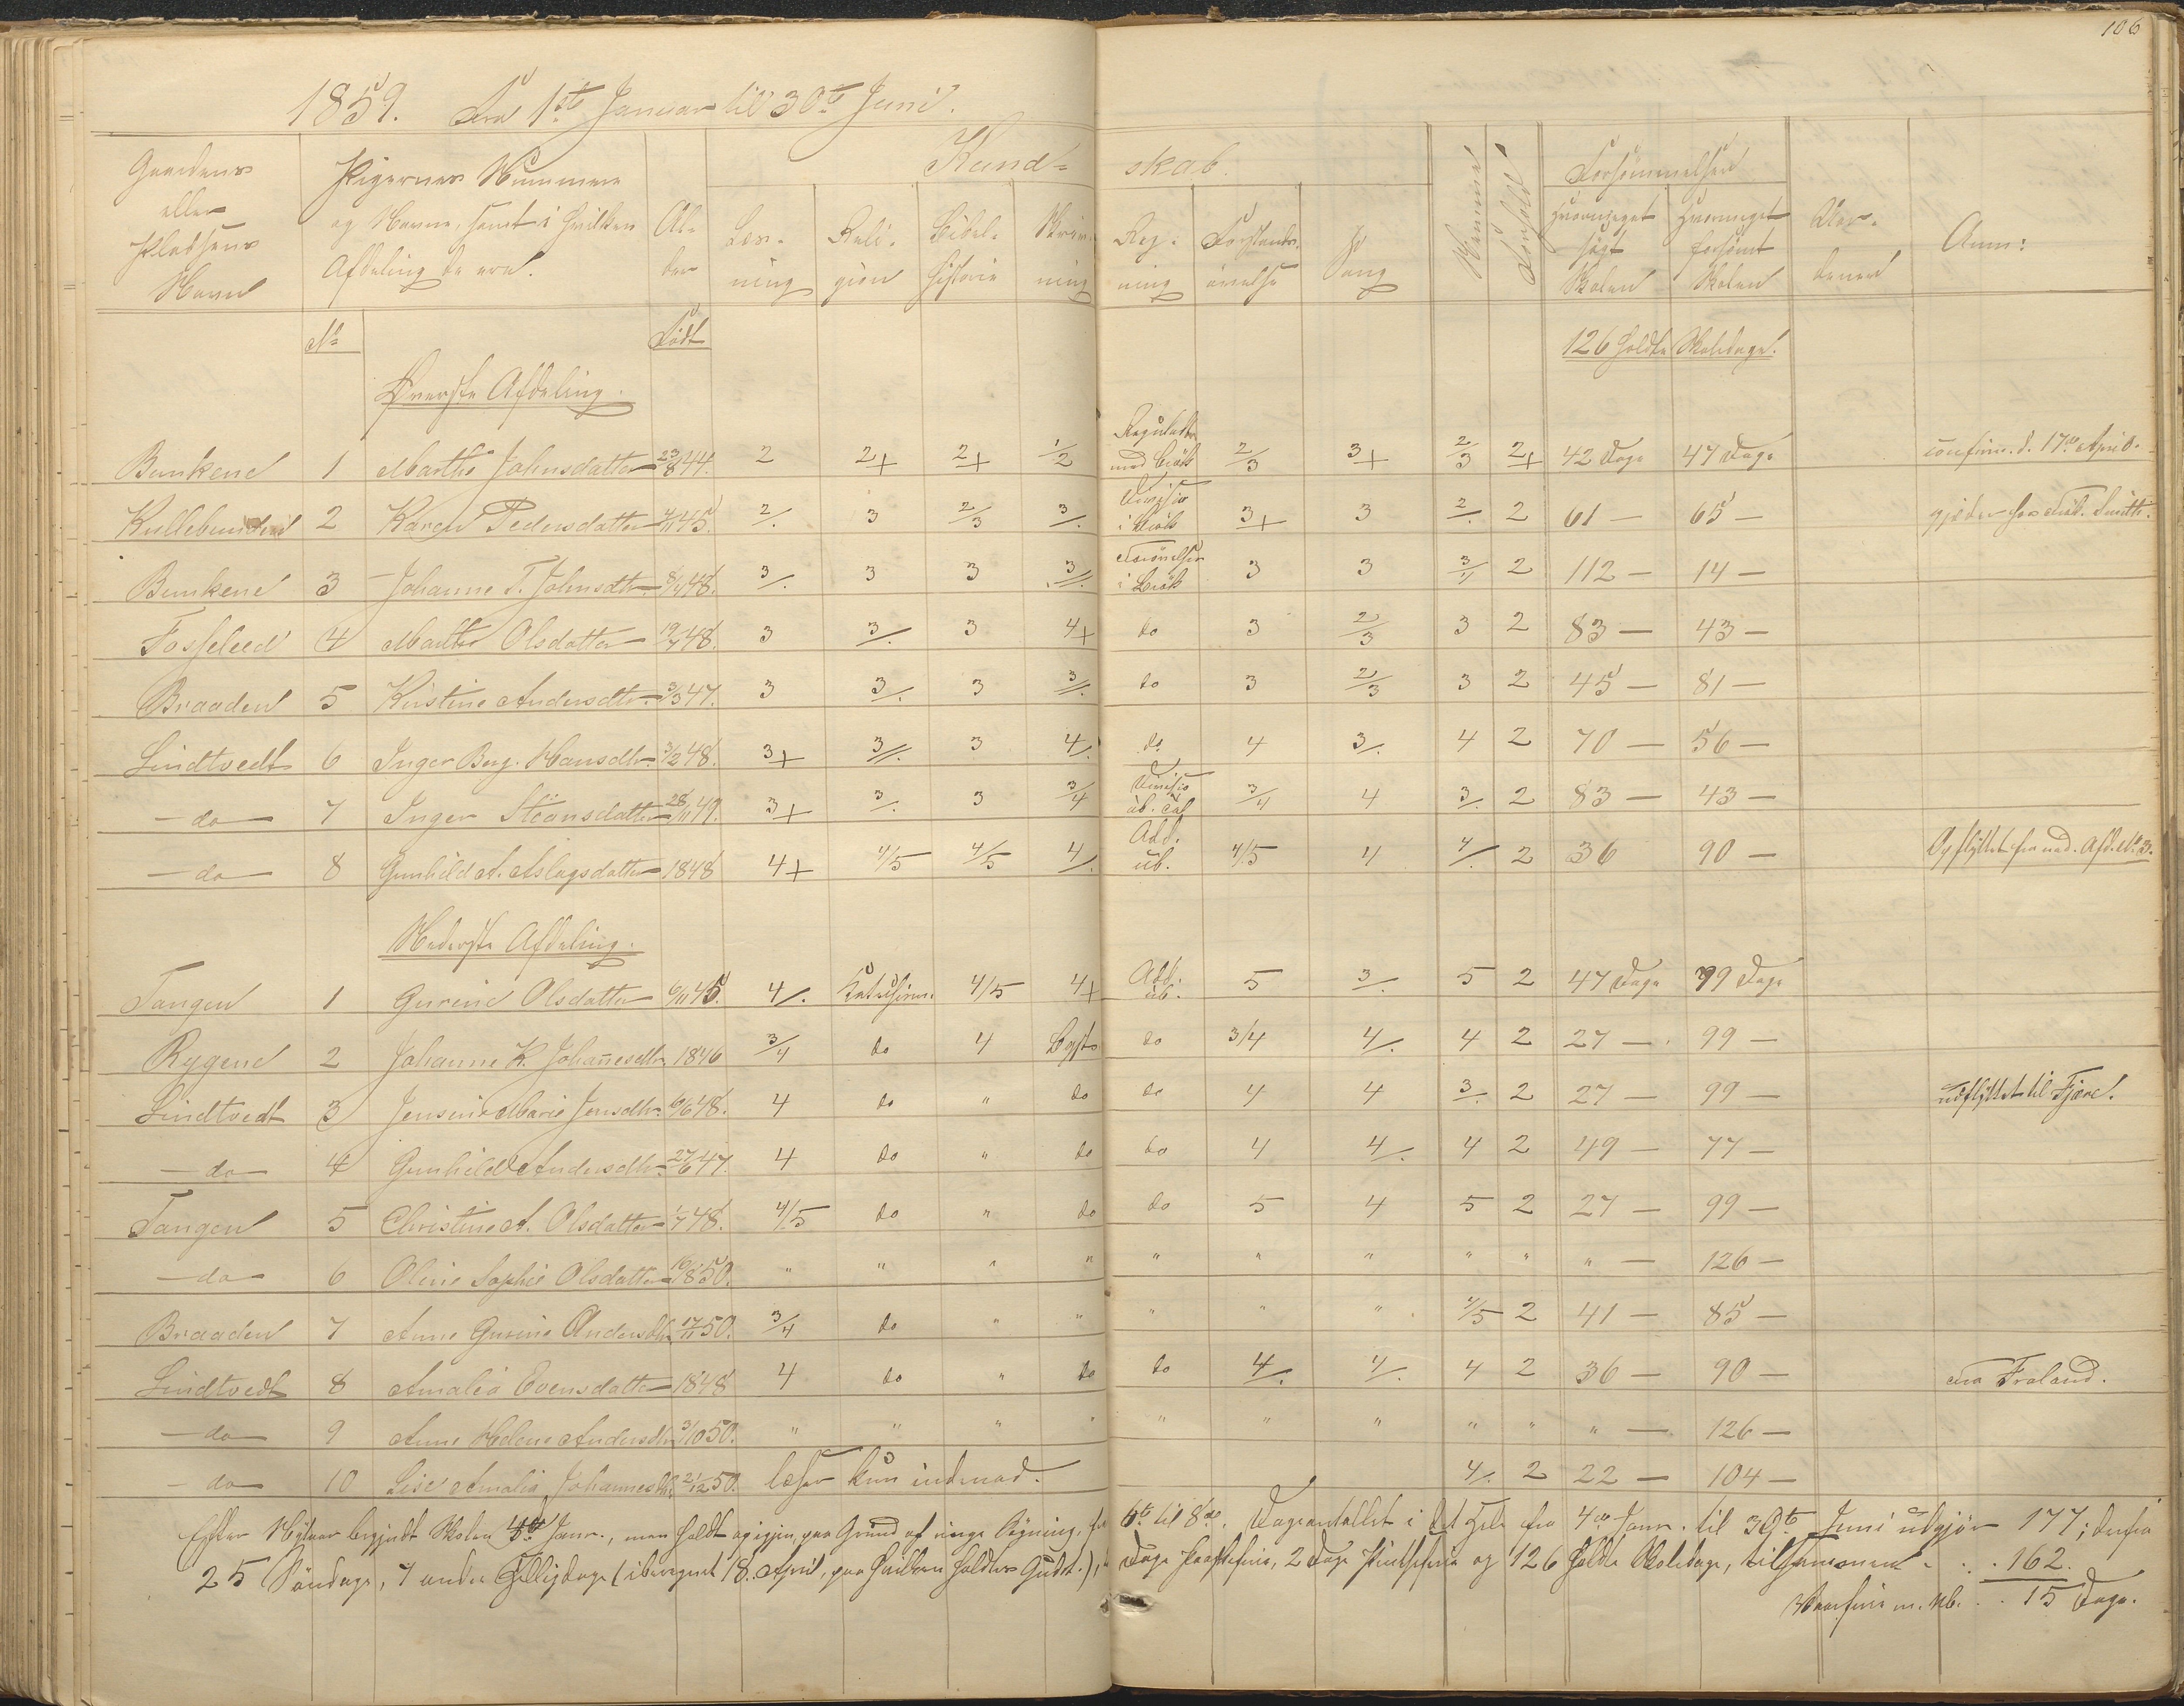 106
1859. Fra 1ste Januar til 30te Juni.
Gaardens eller Pladsens Navn | Pigernes Nummere og Navne, samt i hvilken Afdeling de ere. | Alder | Kundskab. | Læsning | Religion | Bibelhistorie | Skrivning | Regning | Forstandsøvelse | Sang | Nemme | Forhold | Forsømmelser | hvormeget søgt Skolen | hvormeget forsømt Skolen | Anm:
No | Født | 126 holdte Skoledage.
Øverste Afdeling.
Bunkene 1 Marthe Johnsdatter 23/8 44. 2 2+ 2+ 1/2 Reguladetri med Brøk 2/3 3+ 2/3 2+ 42 Dage 47 Dage confirm. d. 17de April.
2 Karen Pedersdatter 4/11 45. 2/. 3 2/3 3/. Division i Brøk 3+ 3 2/. 2 61 — 65 —
Bunkene 3 Johanne T. Johnsdtr. 48. 3/. 3 3 3//. i Brøk 3 3 3/4 2 112 — 14 —
Fosseleed 4 Marthe Olsdatter 19/7 48. 3 3/. 3 4+ do 3 2/3 3 2 83 — 43 —
Braaden 5 Kirstine Andersdtr. 3/3 47. 3 3/. 3 3//. do 3 2/3 3 2 45 — 81 —
Lindtvedt 6 Inger Berg. Hansdtr. 3/2 48. 3+ 3//. 3 4/. do 4 3/. 4 2 70 — 56 —
— do — 7 Inger Stiansdatter 28/11 49. 3+ 3/. 3 3/4 Division 3/4 4 3/. 2 83 — 43 —
— do — 8 Gunhild A. Aslagsdatter 1848 4+ 4/5 4/5 4/. Add. ub. 4/5 4 4/. 2 36 90 — Opflyttet fra ned. Afd. No 3.
Nederste Afdeling.
Tangen 1 Gurine Olsdatter 6/11 45. 4/. 4/5 4+ Add. ub. 5 3/. 5 2 47 Dage 79 Dage
Rygene 2 Johanne K. Johannesdtr. 1846 3/4 do 4 Bogst. do 3/4 4/. 4 2 27 — 99 —
Lindtvedt 3 Jensine Marie Jensdtr. 6/6 48. 4 do " do do 4 4 3/. 2 27 — 99 — udflyttet til Fjære.
— do — 4 Gunhild Andersdtr. 27/6 47. 4 do " do do 4 4/. 4 2 49 — 77 —
Tangen 5 Christine A. Olsdatter 1/7 48. 4/5 do " do do 5 4 5 2 27 — 99 —
— do — 6 Oline Sophie Olsdatter 16/8 50. " " " " " " " " " " — 126 —
Braaden 7 Anne Gurine Andersdtr. 17/11 50. 3/4 do " " " " " 4/5 2 41 — 85 —
Lindtvedt 8 Amalia Evensdatter 1848 4 do " do do 4/. 4/. 4 2 36 — 90 — fra Froland.
— do — 9 Anne Helene Andersdtr. 3/10 50. " " " " " " " " " " — 126 —
— do — 10 Lise Amalia Johannesdtr. 21/12 50. læser kun indenad. 4/. 2 22 — 104 —
Efter Nytaar begyndt Skolen 4de Janr., men holdt op igjen, paa Grund af ringe Søgning, fra 6te til 8de. Dageantallet i det Hele fra 4de Janr. til 30te Juni udgjør 177; derfra
25 Søndage, 7 andre Helligdage (iberegnet 18. April, paa hvilken holdtes Gudst.), Dage Paaskeferie, 2 Dage Pintseferie og 126 holdte Skoledage, tilsammen . . 162.
Vaarferie m. . . 15 Dage.